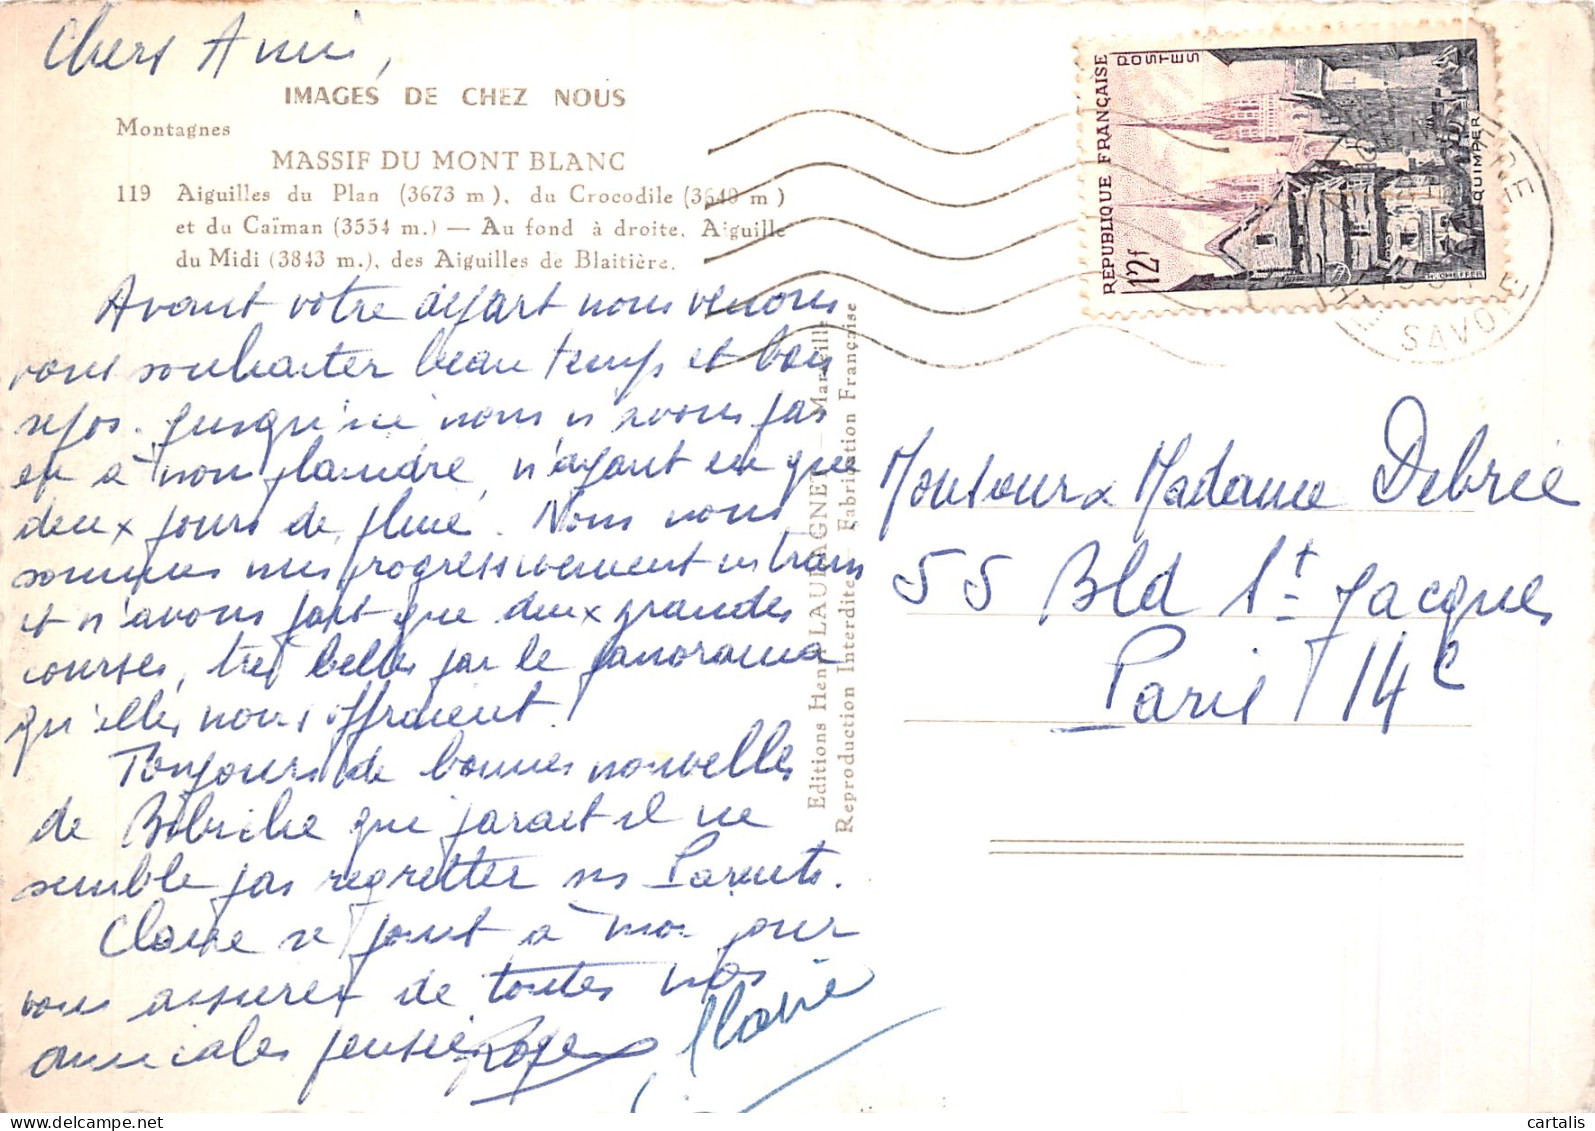 Chers Amis,
IMAGES DE CHEZ NOUS
Montagnes
MASSIF DU MONT BLANC
119 Aiguilles du Plan (3673 m), du Crocodile (3640 m)
et du Caïman (3554 m.) — Au fond à droite, Aiguille
du Midi (3843 m.), des Aiguilles de Blaitière.
Avant votre départ nous venons
vous souhaiter beau temps et bon
repos. Jusqu'ici nous n'avons pas
eu à nous plaindre, n'ayant eu que
deux jours de pluie. Nous nous
sommes mis progressivement en train
et n'avons fait que deux grandes
courses, très belles par le panorama
qu'elles nous offraient.
Toujours de bonnes nouvelles
de qui paraît il ne
semble pas regretter ses Parents.
Claire se joint à moi pour
vous assurer de toutes nos
amicales pensées Roger
Claire
Editions Henri LAURAGNET - Marseille
Reproduction Interdite - Fabrication Française
REPUBLIQUE FRANÇAISE
POSTES
12f
QUIMPER
H. CHEFFER
SAVOIE
Monsieur & Madame Debrie
55 Bld St Jacques
Paris 14e
cartalis